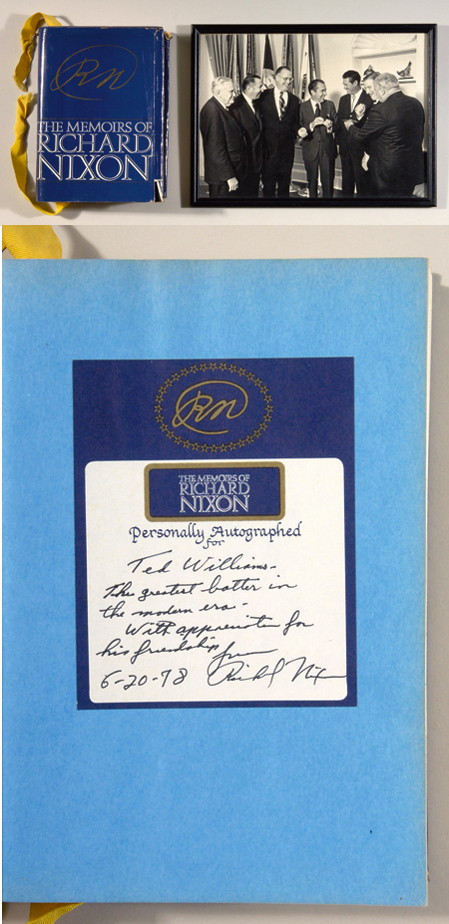 RN
THE MEMOIRS OF
RICHARD
NIXON
RN
THE MEMOIRS OF
RICHARD
NIXON
Personally Autographed
for
Ted Williams-
the greatest batter in
the modern era-
With appreciation for
his friendship from
6-20-78 Richard Nixon